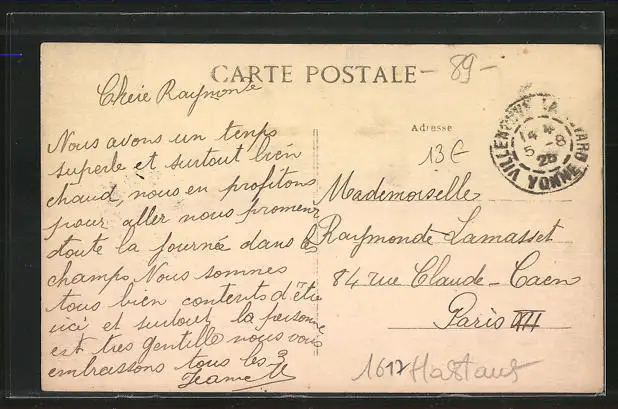 CARTE POSTALE
- 89 -
Chère Raymonde
Adresse
13 €
VILLENEUVE LA GUYARD
14 *
5 - 8
26
YONNE
Nous avons un temps
superbe et surtout bien
chaud, nous en profitons
pour aller nous promener
toute la journée dans les
champs Nous sommes
tous bien contents d'être
ici et surtout la personne
est très gentille nous vous
embrassons tous les 3
Jeanne
Mademoiselle
Raymonde Lamasset
84 rue Claude-Caen
Paris XII
1617